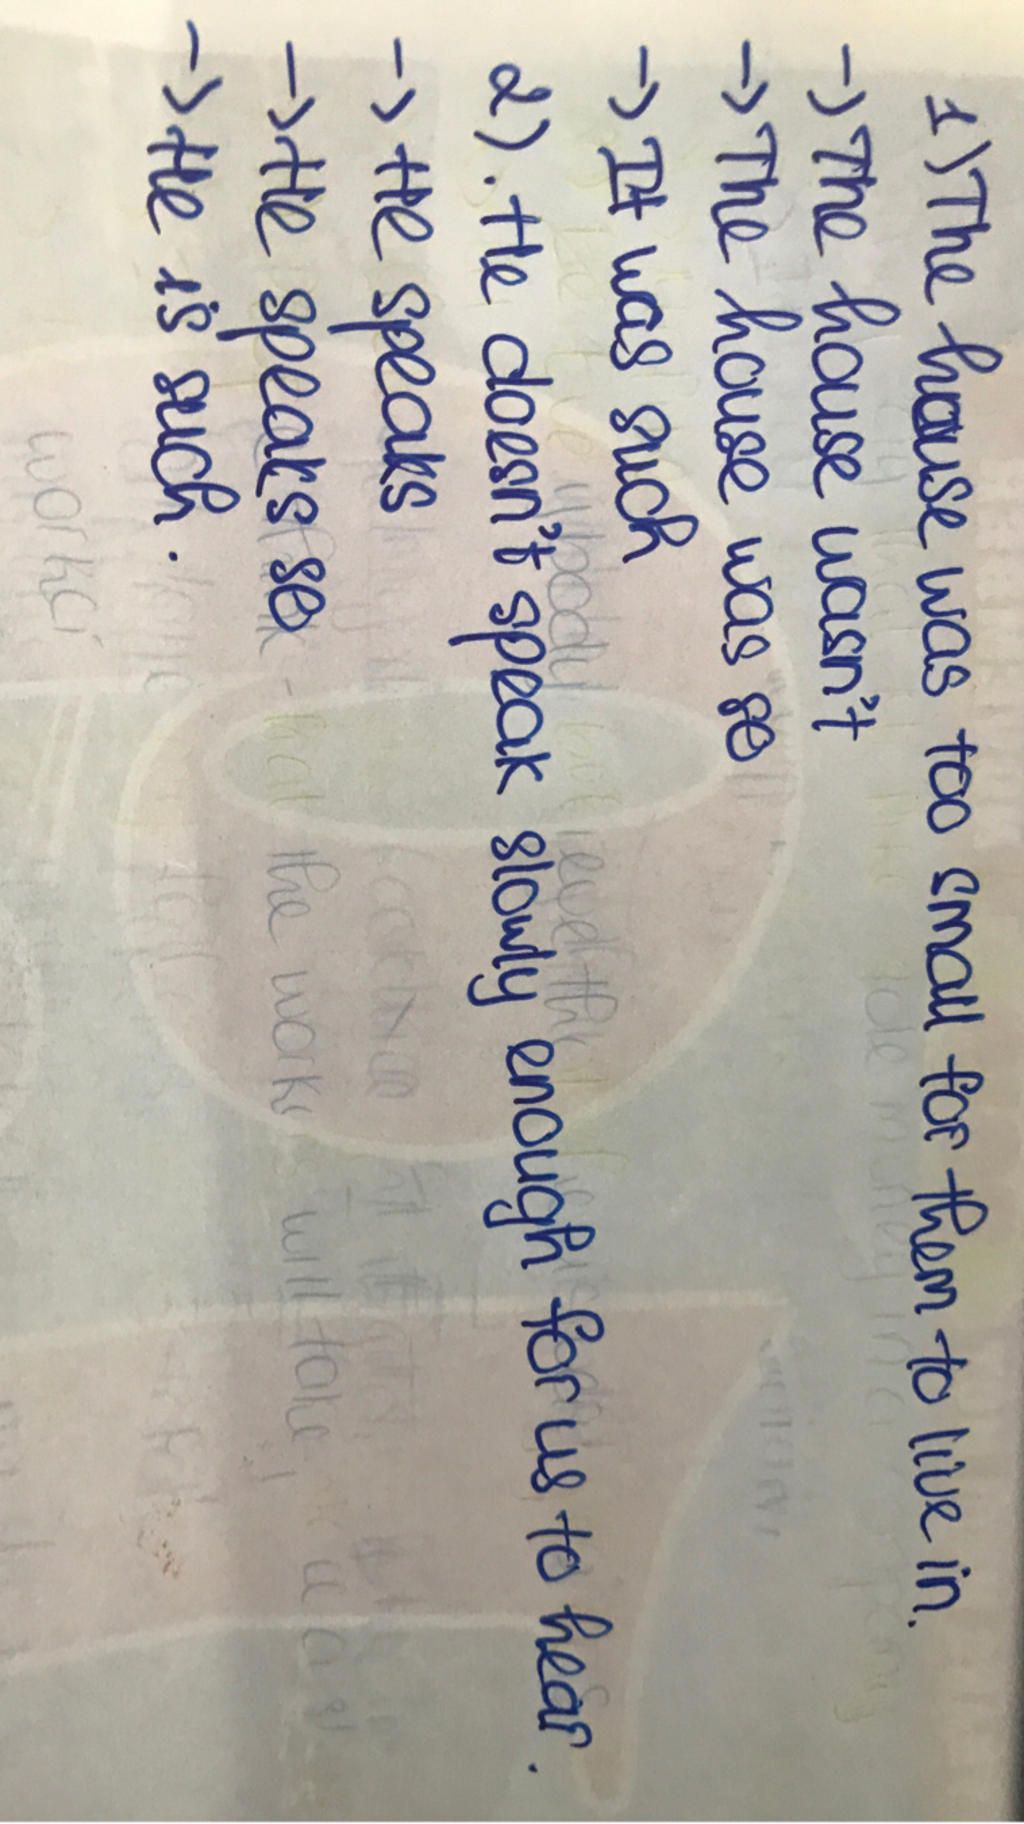 1) The house was too small for them to live in.
-> The house wasn't
-> The house was so
-> It was such
2). He doesn't speak slowly enough for us to hear.
-> He speaks
-> He speaks so
-> He is such.